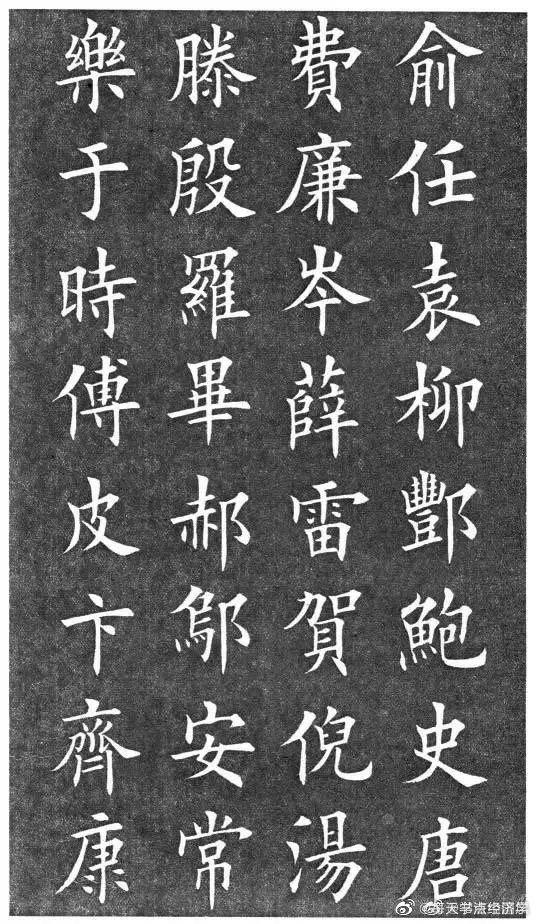 俞任袁柳酆鮑史唐
費廉岑薛雷賀倪湯
滕殷羅畢郝鄔安常
樂于時傅皮卞齊康
@每天学点经济学